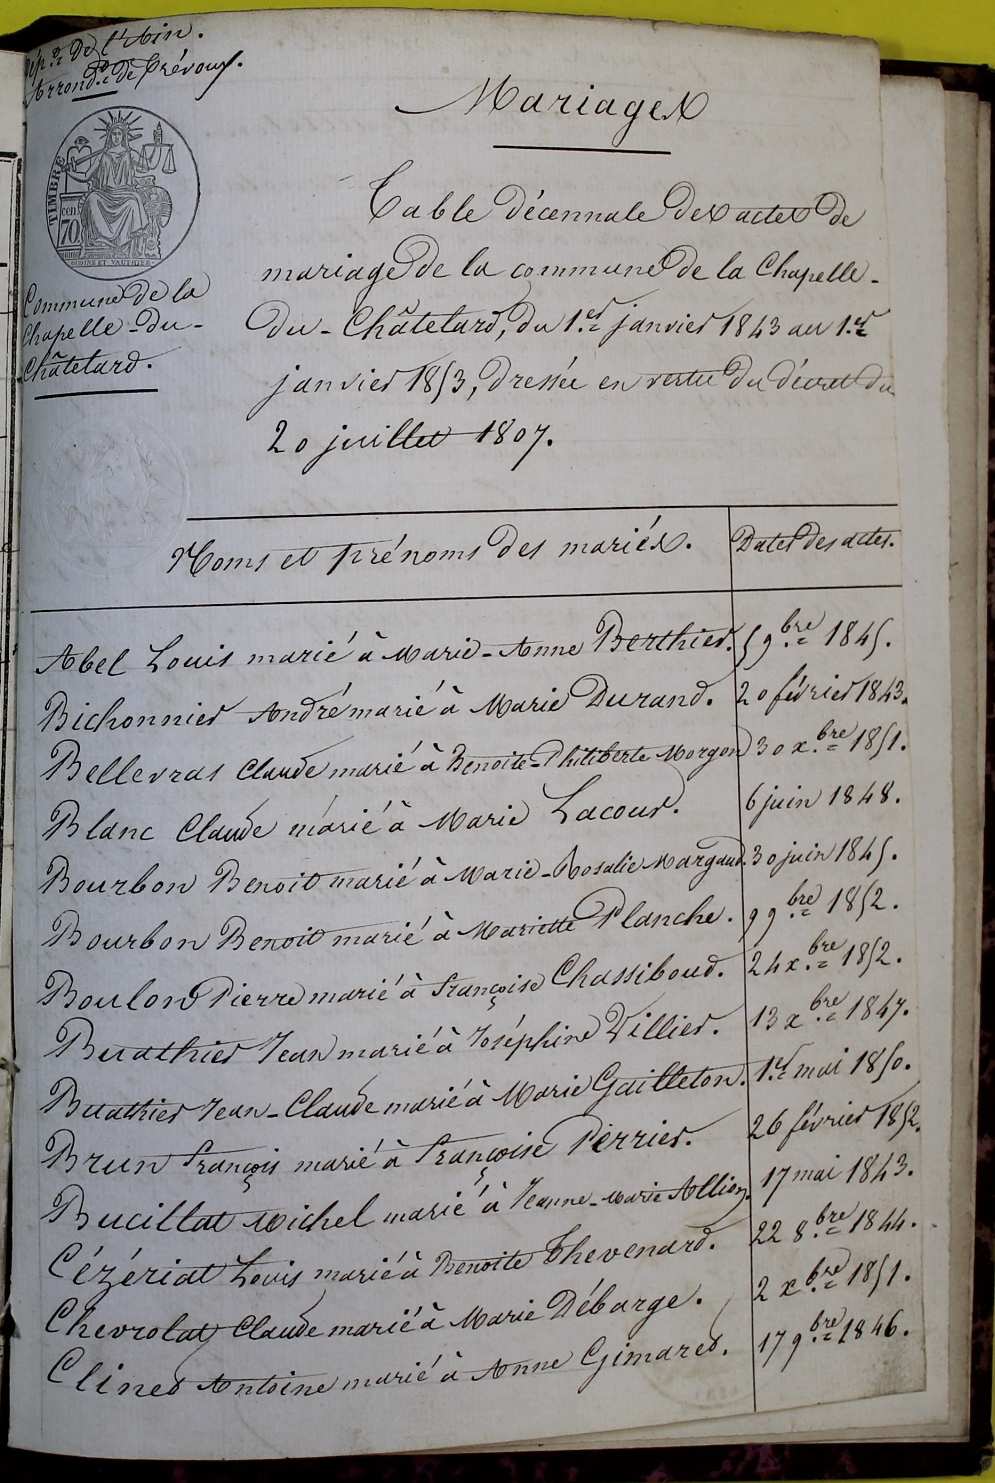 Dép.t De l'Ain.
Arrond.t de Trévoux.
Mariages
TIMBRE
cen.
70
Commune de la
Chapelle-Du-
Châtelard.
Table décennale des actes de
mariage de la commune de la Chapelle-
Du-Châtelard, du 1.er janvier 1843 au 1.er
janvier 1853, dressée en vertu du décret du
20 juillet 1807.
Noms et prénoms des mariés. Dates des actes.
Abel Louis marié à Marie-Anne Berthier. 5 9.bre 1845.
Bichonnier André marié à Marie Durand. 20 février 1843.
Bellevras Claude marié à Benoite-Philiberte Morgon 30 x.bre 1851.
Blanc Claude marié à Marie Lacour. 6 juin 1848.
Bourbon Benoit marié à Marie-Rosalie Margaud. 30 juin 1845.
Bourbon Benoit marié à Mariette Planche. 9 9.bre 1852.
Boulon Pierre marié à françoise Chassiboud. 24 x.bre 1852.
Buathier Jean marié à Joséphine Villier. 13 x.bre 1847.
Buathier Jean-Claude marié à Marie Gailleton. 1.er mai 1850.
Brun françois marié à françoise Perrier. 26 février 1852.
Bucillat Michel marié à Jeanne-Marie Allion. 17 mai 1843.
Cézériat Louis marié à Benoite Thevenard. 22 8.bre 1844.
Chevrolat Claude marié à Marie Débarge. 2 x.bre 1851.
Clined Antoine marié à Anne Gimared. 17 9.bre 1846.